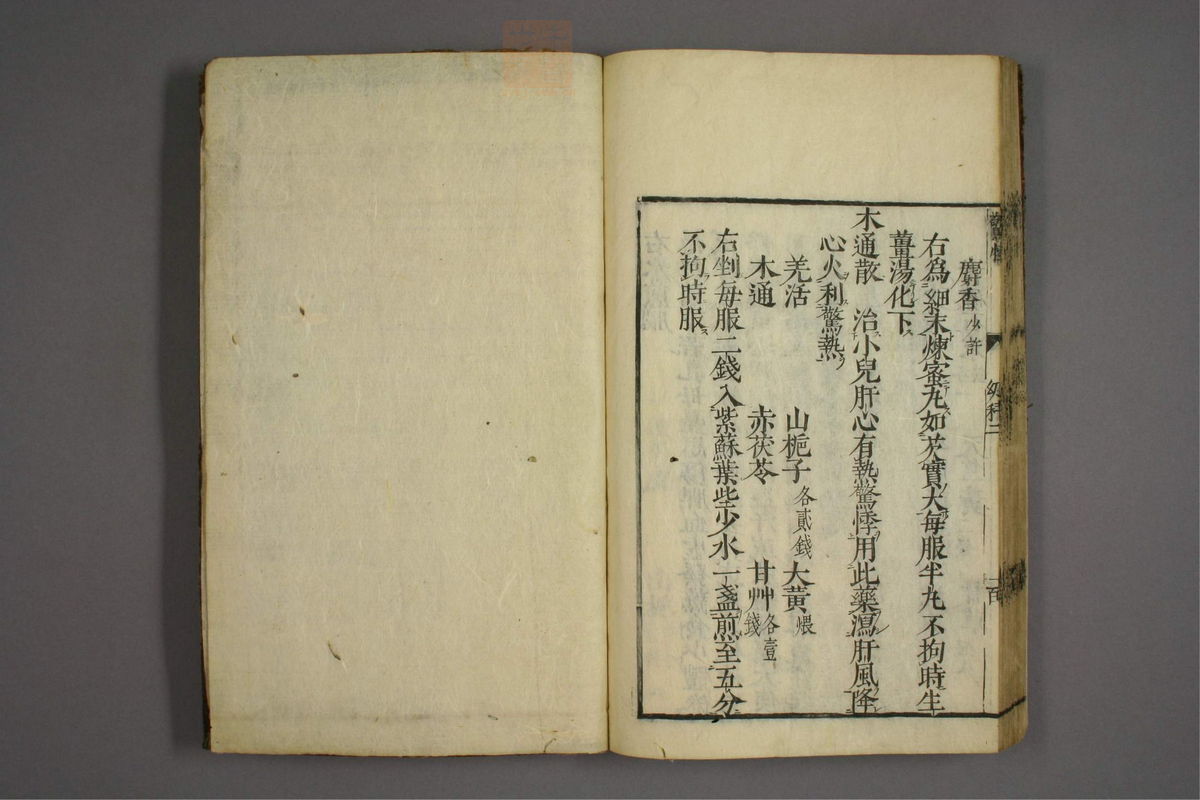 麝香少許
右為細末煉蜜丸如芡實大每服半丸不拘時生
薑湯化下
木通散　治小兒肝心有熱驚悸用此藥瀉肝風降
心火利驚熱
羌活　山梔子各貳錢　大黃煨
木通　赤茯苓　甘艸各壹錢
右剉每服二錢入紫蘇葉些少水一盞煎至五分
不拘時服
幼科二
一百